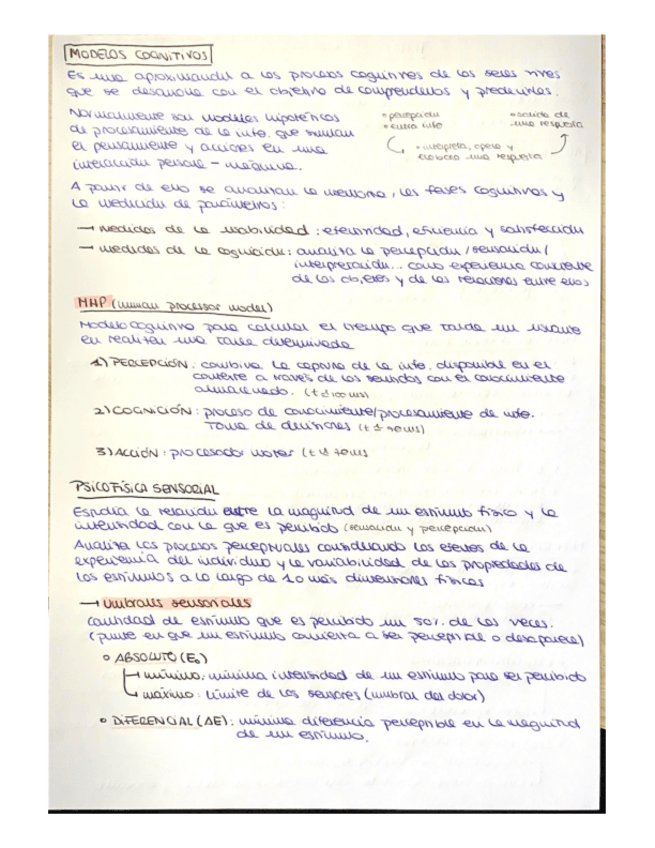 MODELOS COGNITIVOS
Es una aproximación a los procesos cognitivos de los seres vivos
que se desarrolla con el objetivo de comprenderlos y predecirlos.
Normalmente son modelos hipotéticos
de procesamiento de la info. que simulan
el pensamiento y acciones en una
interacción persona - máquina.
• percepción
• entra info
• interpreta, opera y
elabora una respuesta
• salida de
una respuesta
A partir de ello se analizan la memoria, las fases cognitivas y
la medición de parámetros:
→ medidas de la usabilidad: efectividad, eficiencia y satisfacción
→ medidas de la cognición: analiza la percepción/sensación/
interpretación... como experiencia consciente
de los objetos y de las relaciones entre ellos
MHP (human processor model)
Modelo cognitivo para calcular el tiempo que tarda un usuario
en realizar una tarea determinada
1) PERCEPCIÓN: combina la captura de la info. disponible en el
contexto a través de los sentidos con el conocimiento
almacenado. (t ± 100 ms)
2) COGNICIÓN: proceso de conocimiento/procesamiento de info.
Toma de decisiones (t ± 70ms)
3) ACCIÓN: procesador motor (t ± 70ms
PSICOFÍSICA SENSORIAL
Estudia la relación entre la magnitud de un estímulo físico y la
intensidad con la que es percibido (sensación y percepción)
Analiza los procesos perceptuales considerando los efectos de la
experiencia del individuo y la variabilidad de las propiedades de
los estímulos a lo largo de 1 o más dimensiones físicas
→ Umbrales sensoriales
Cantidad de estímulo que es percibido un 50%. de las veces.
(punto en que un estímulo comienza a ser perceptible o desaparece)
• ABSOLUTO (E₀)
→ mínimo: mínima intensidad de un estímulo para ser percibido
→ máximo: límite de los sensores (umbral del dolor)
• DIFERENCIAL (ΔE): mínima diferencia perceptible en la magnitud
de un estímulo.